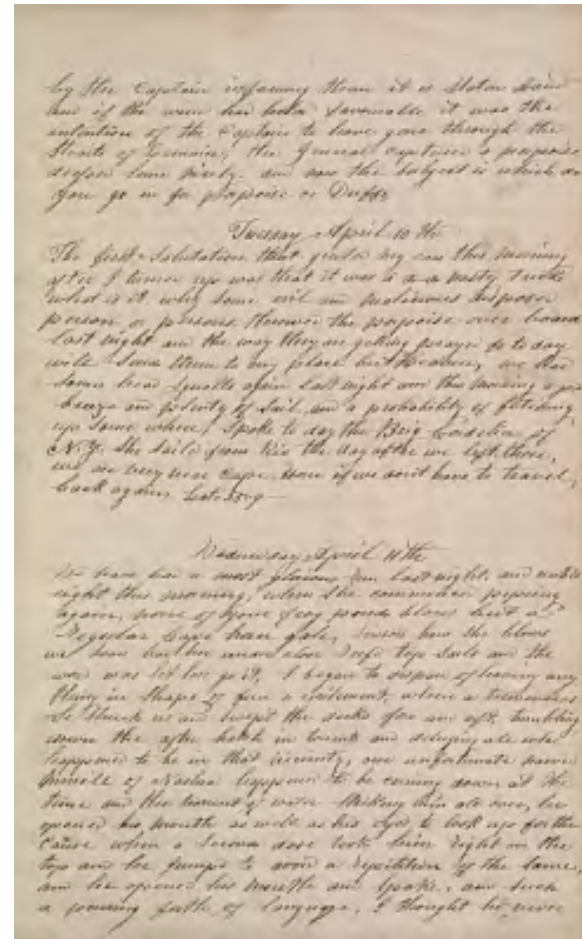 by the Captain informing them it is Staten Land
and if the wind had been favourable it was the
intention of the Captain to have gone through the
Straits of Lemaire, the General captured a porpoise
before some
you go in for porpoise or Duff,
Tuesday April 10 th
The first salutation that my ears this morning
after I turned up was that it was a nasty trick
what is it, why some evil and malicious disposed
person or persons throwed the porpoise over board
last night and the way they are getting to day
will send them to my place hereafter, we had
some head squalls again last night and this morning a good
breeze and plenty of sail, and a probability of fetching
up some where, Spoke to day the Brig of
N.Y. She sailed from Rio the day after we left there,
we are very near Cape Horn if we don't have to travel
back again, Lat
Wednesday April 11 th
We have had a most glorious run last night, and until
eight this morning, when she commenced piping
again, none of your frog pond blows but a
Regular Cape Horn gale, how she blows
we soon had her under close reef top sails and the
word was let her go it, I began to despair of having any
thing in shape of fun or excitement, when a tremendous
Sea struck us and swept the decks fore and aft, tumbling
down the after hatch in torrents and all who
happened to be in that vicinity, one unfortunate named
of Nashua happened to be coming down at the
time and the torrent of water striking him all over, he
opened his mouth as well as his eyes to look up for the
cause when a second dose took him right on the
top and he jumps to avoid a repetition of the same,
and he opened his mouth and spoke, and such
a pouring forth of language, I thought he never